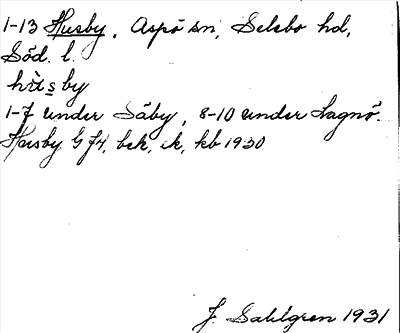 1-13 Husby, Aspö sn, Selebo hd,
Söd. l.
hù̀sby
1-7 under Säby, 8-10 under Lagnö.
Husby G 74, bek, ek, kb 1930
J. Sahlgren 1931